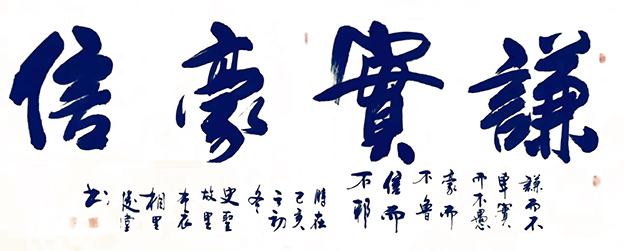 謙實豪信
謙而不
卑實
而不愚
豪而
不魯
信而
不邪
時在
己亥
之初
冬
史聖
故里
布衣
相里
書